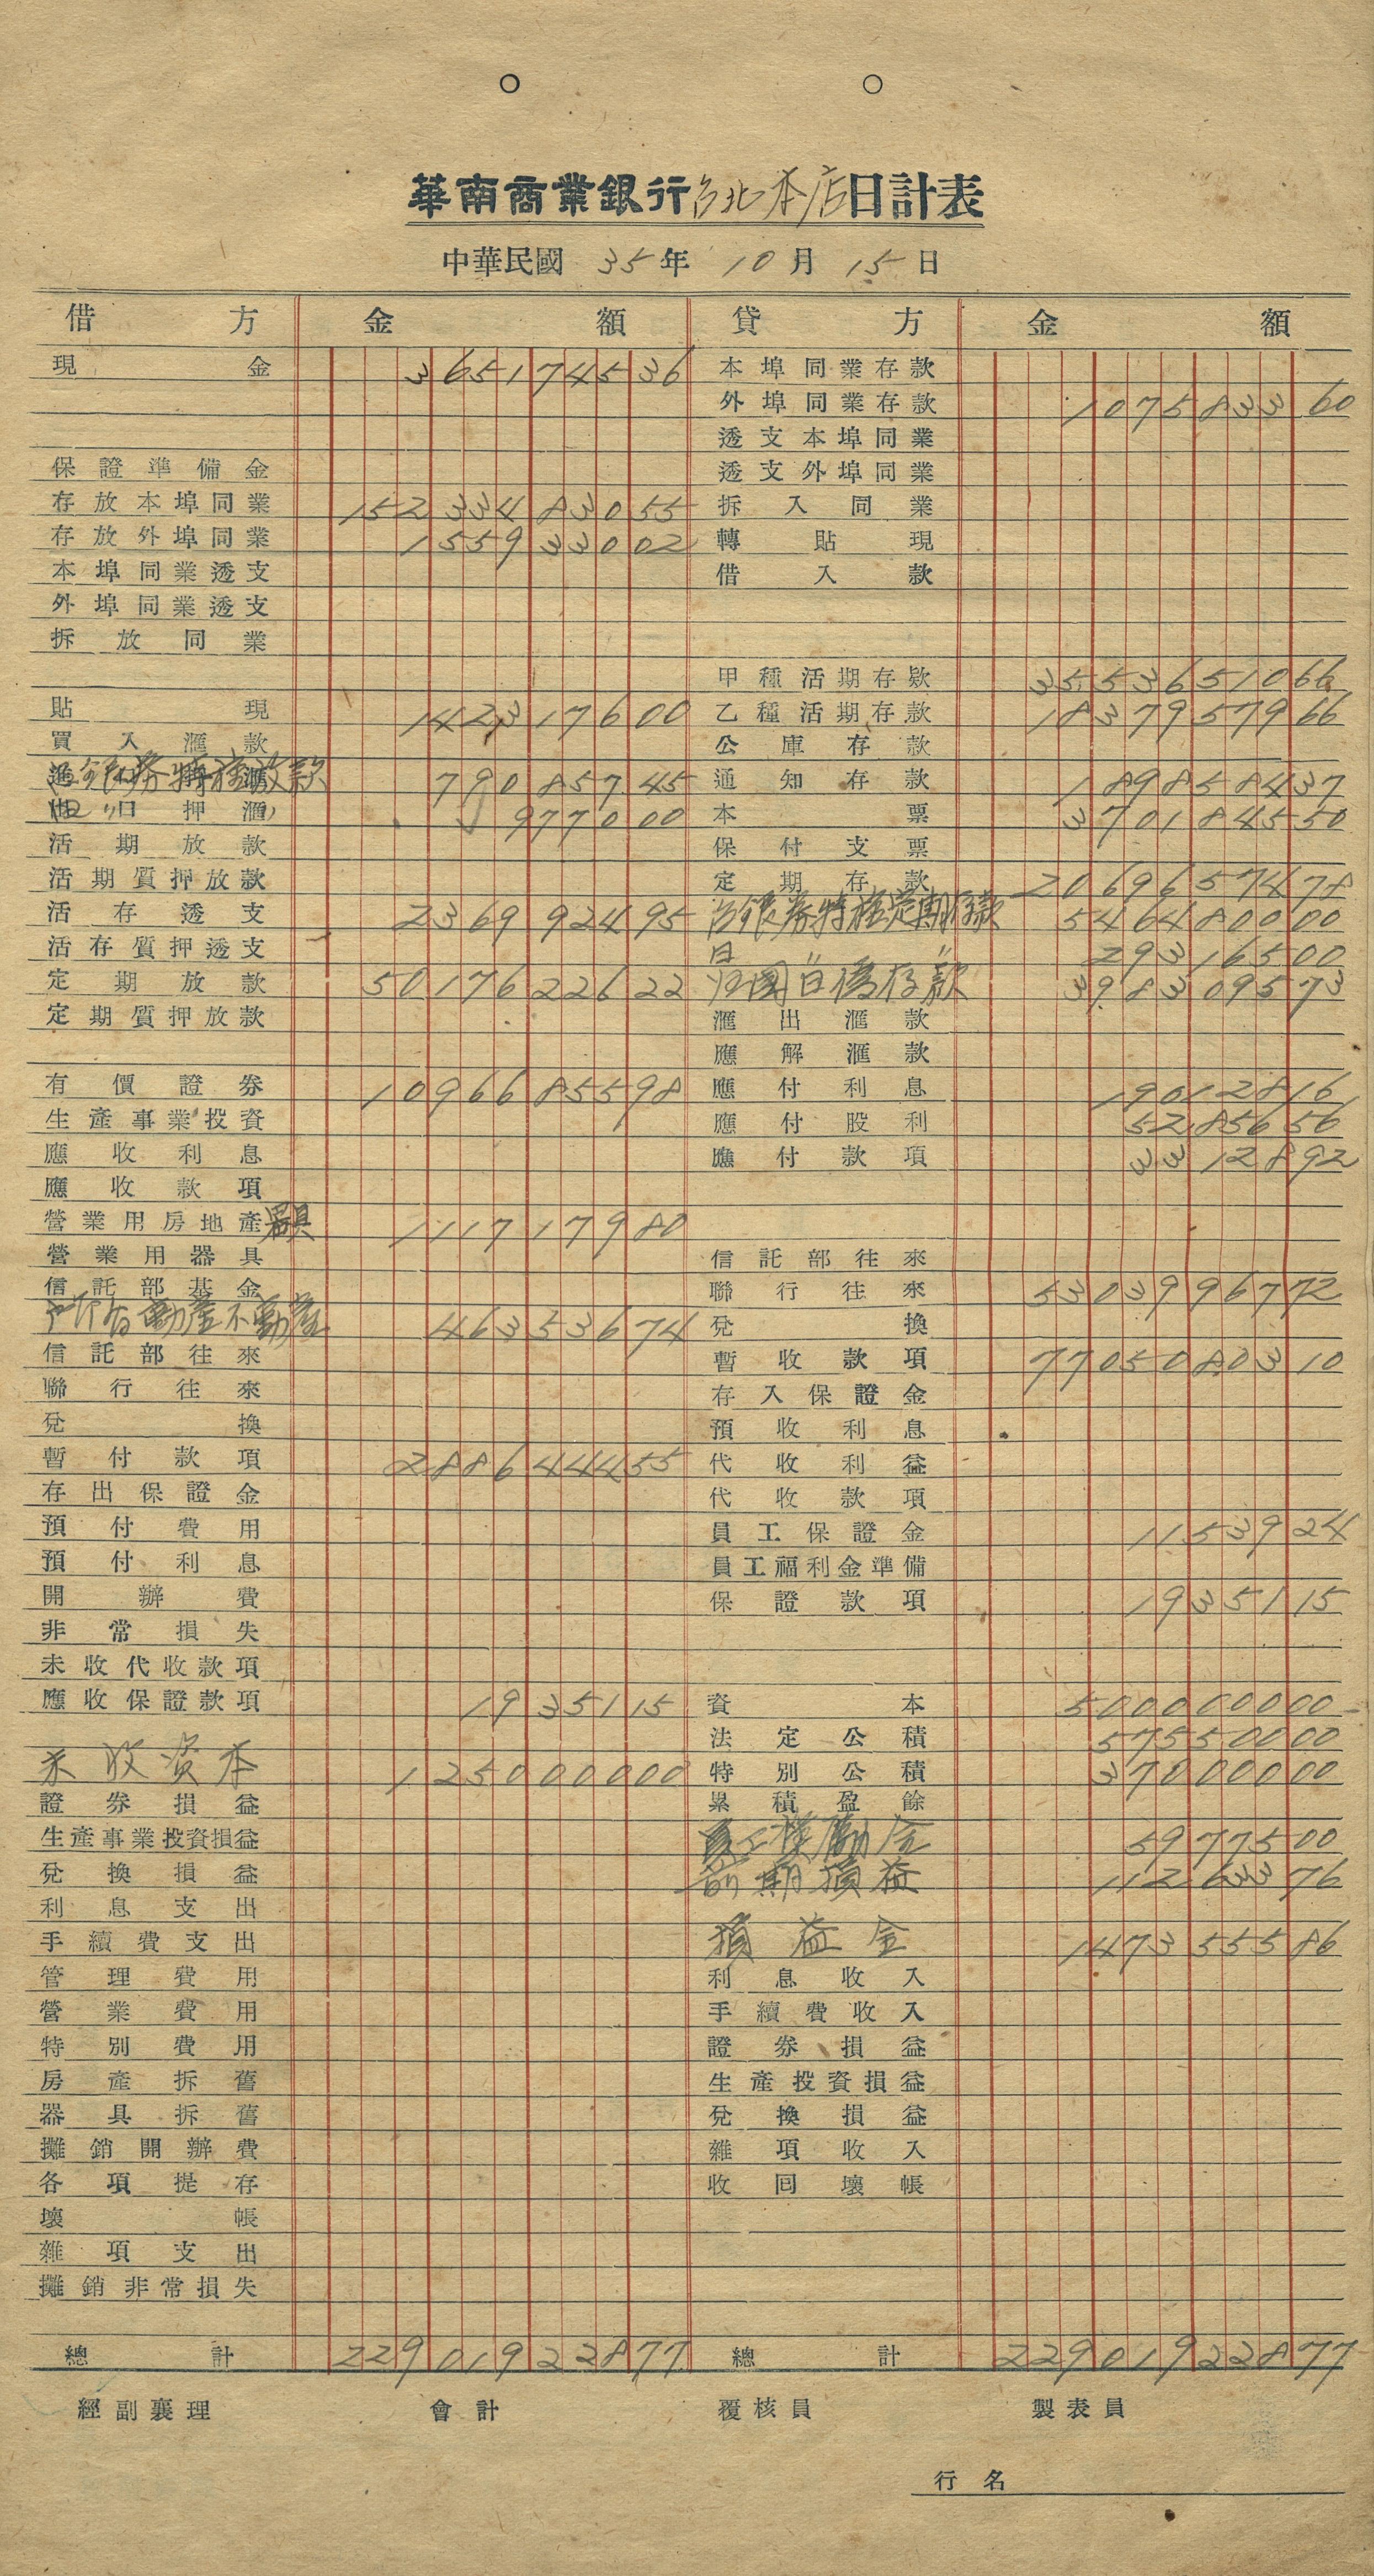 華南商業銀行台北本店日計表
中華民國 35年 10月 15日
借方 金額 貸方 金額
現金 3651745 36 本埠同業存款
外埠同業存款 1075833 60
透支本埠同業
保證準備金 透支外埠同業
存放本埠同業 152334830 55 拆入同業
存放外埠同業 1559330 02 轉貼現
本埠同業透支 借入款
外埠同業透支
拆放同業
甲種活期存款 35536510 66
貼現 1423176 00 乙種活期存款 18379579 66
買入滙款 公庫存款
台銀券特種放款 790857 45 通知存款 1898584 37
押滙 9770 00 本票 3701845 50
活期放款 保付支票
活期質押放款 定期存款 20696574 78
活存透支 2369924 95 台銀券特種定期存款 5464800 00
活存質押透支 日 〃 293165 00
定期放款 50176226 22 存款 3983095 73
定期質押放款 滙出滙款
應解滙款
有價證券 10966855 98 應付利息 190128 16
生產事業投資 應付股利 52856 56
應收利息 應付款項 33128 92
應收款項
營業用房地產器具 1117179 80
營業用器具 信託部往來
信託部基金 聯行往來 53039967 72
所有動產不動產 463536 74 兌換
信託部往來 暫收款項 77050803 10
聯行往來 存入保證金
兌換 預收利息
暫付款項 2886444 55 代收利益
存出保證金 代收款項
預付費用 員工保證金 11539 24
預付利息 員工福利金準備
開辦費 保證款項 19351 15
非常損失
未收代收款項
應收保證款項 19351 15 資本 5000000 00
法定公積 575500 00
未收資本 1250000 00 特別公積 370000 00
證券損益 累積盈餘
生產事業投資損益 員工獎勵金 59775 00
兌換損益 前期損益 112633 76
利息支出
手續費支出 損益金 1473555 86
管理費用 利息收入
營業費用 手續費收入
特別費用 證券損益
房產拆舊 生產投資損益
器具拆舊 兌換損益
攤銷開辦費 雜項收入
各項提存 收回壞帳
壞帳
雜項支出
攤銷非常損失
總計 229019228 77 總計 229019228 77
經副襄理 會計 覆核員 製表員
行名